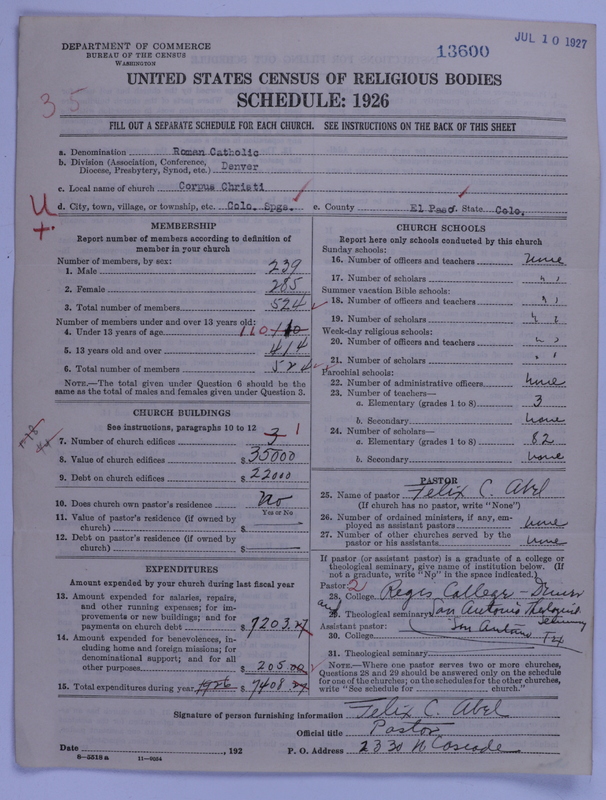 DEPARTMENT OF COMMERCE
BUREAU OF THE CENSUS
WASHINGTON
13600
JUL 10 1927
UNITED STATES CENSUS OF RELIGIOUS BODIES
SCHEDULE: 1926
35
FILL OUT A SEPARATE SCHEDULE FOR EACH CHURCH. SEE INSTRUCTIONS ON THE BACK OF THIS SHEET
a. Denomination Roman Catholic
b. Division (Association, Conference, Diocese, Presbytery, Synod, etc.) Denver
c. Local name of church Corpus Christi
d. City, town, village, or township, etc. Colo. Spgs. e. County El Paso. State Colo.
MEMBERSHIP
Report number of members according to definition of
member in your church
Number of members, by sex:
1. Male 239
2. Female 285
3. Total number of members 524
Number of members under and over 13 years old:
4. Under 13 years of age 110
5. 13 years old and over 414
6. Total number of members 524
NOTE.—The total given under Question 6 should be
same as the total of males and females given under Question 3.
CHURCH BUILDINGS
See instructions, paragraphs 10 to 12
7. Number of church edifices 3 1
8. Value of church edifices $ 35000
9. Debt on church edifices $ 22000
10. Does church own pastor's residence No
Yes or No
11. Value of pastor's residence (if owned by
church) $
12. Debt on pastor's residence (if owned by
church) $
EXPENDITURES
Amount expended by your church during last fiscal year
13. Amount expended for salaries, repairs,
and other running expenses; for im-
provements or new buildings; and for
payments on church debt $ 7203.27
14. Amount expended for benevolences, in-
cluding home and foreign missions; for
denominational support; and for all
other purposes $ 205.00
15. Total expenditures during year 1926 $ 7408.27
CHURCH SCHOOLS
Report here only schools conducted by this church
Sunday schools:
16. Number of officers and teachers none
17. Number of scholars " "
Summer vacation Bible schools:
18. Number of officers and teachers " "
19. Number of scholars " "
Week-day religious schools:
20. Number of officers and teachers " "
21. Number of scholars " "
Parochial schools:
22. Number of administrative officers none
23. Number of teachers—
a. Elementary (grades 1 to 8) 3
b. Secondary none
24. Number of scholars—
a. Elementary (grades 1 to 8) 82
b. Secondary none
PASTOR
25. Name of pastor Felix C. Abel
(If church has no pastor, write "None")
26. Number of ordained ministers, if any, em-
ployed as assistant pastors none
27. Number of other churches served by the
pastor or his assistants none
If pastor (or assistant pastor) is a graduate of a college or
theological seminary, give name of institution below. (If
not a graduate, write "No" in the space indicated.)
Pastor: 2
28. College Regis College - Denver
and
29. Theological seminary San Antonio Theological
Seminary
Assistant pastor: San Antonio Tex
30. College
31. Theological seminary
NOTE.—Where one pastor serves two or more churches,
Questions 28 and 29 should be answered only on the schedule
for one of the churches; on the schedules for the other churches,
write "See schedule for church."
Signature of person furnishing information Felix C. Abel
Official title Pastor
Date , 192 P. O. Address 2330 N Cascade
8—5518a 11—9034